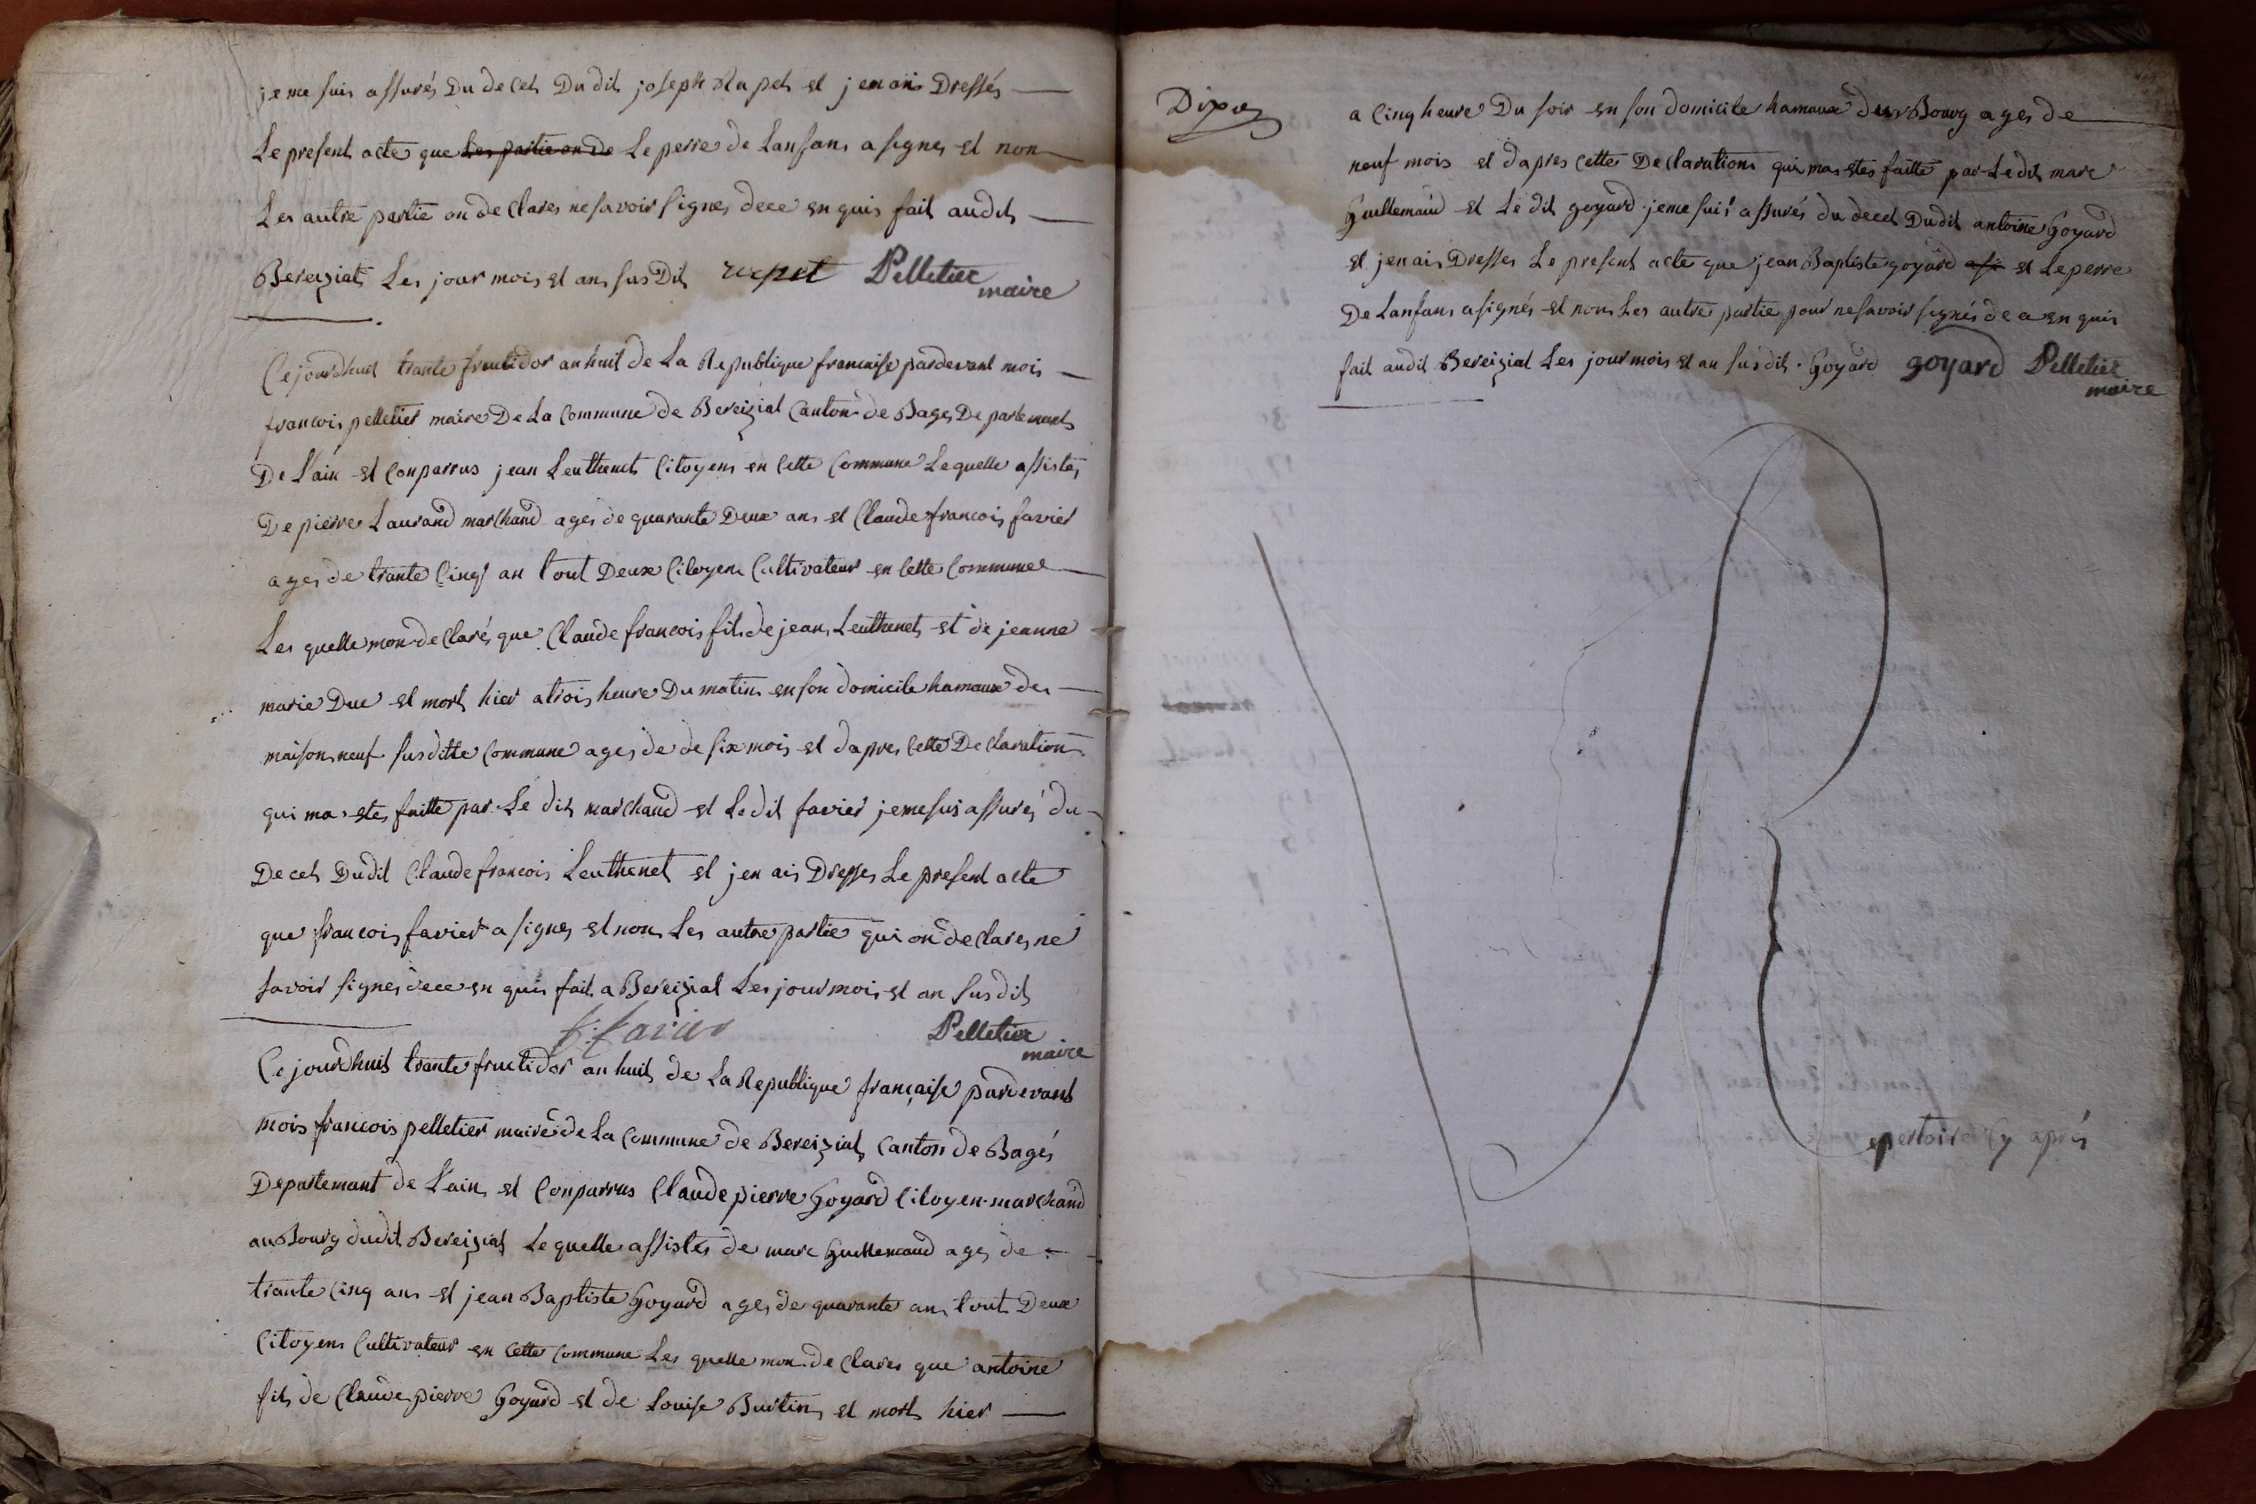 je me suis assurés Du decet Du dit joseph Rapet et jenais Dressés
Le present acte que Les partie on de Le perre de Lanfans a signes et non
Les autre partie on de Clares ne savoir signes dece enquis fait audit
Bereiziat Les jour mois et ans sus Dit rapet Pelletier
maire
Cejourdhuit trante fructidor an huit de La Republique francaise pardevant mois
francois pelletier maire De La Commune de Bereizial Canton de Bages Departemant
De L'ain et Conparrus jean Leuthenet Citoyens en Cette Commune Lequelle assistes
De pierre Laurand marchand ages de quarante Deux ans et Claude francois favier
ages de trante Cinq an tout Deux Citoyens Cultivateur en Cette Commune
Les quelle mon de Clarés que Claude francois fils de jean Leuthenet et de jeanne
marie Duc et mort hier a trois heure Du matin en son domicile hamaux des
maison neuf susditte Commune ages de de six mois et dapres Cette De Claration
qui ma estes faitte par Le dit marchand et Ledit favier jeme suis assurés du
Decet Dudit Claude francois Leuthenet et jen ais Dresses Le present acte
que francois favier a signes et non Les autre partie qui on de Clares ne
savoir signes dece enquis fait a Bereizial Les jour mois et an susdit
f. favier Pelletier
maire
Ce jourdhuit trante fructidor an huit de La Republique française pardevant
mois francois pelletier maire de La Commune de Bereizial Canton de Bagés
Departemant de L'ain et Conparrus Claude pierre Goyard Citoyen marchand
au Bourg dudit Bereizial Lequelle assistes de marc Guillemaud ages de
trante Cinq ans et jean Baptiste Goyard ages de quarante ans tout Deux
Citoyens Cultivateur en Cette Commune Les quelle mon de Clares que antoine
fils de Claude pierre Goyard et de Louise Burtin et mort hier
Dipe
a Cinq heure Du soir en son domicile hamaux du Bourg ages de
neuf mois et dapres Cette De Claration qui ma estes faitte par Ledit marc
Guillemaud et Le dit goyard jeme suis assurés du decet Dudit antoine Goyard
et jenais Dresses Le present acte que jean Baptiste goyard et Le perre
De Lanfans a signés et non Les autre partie pour ne savoir signés de a enquis
fait audit Bereizial Les jour mois et an susdit. Goyard goyard Pelletier
maire
Repertoire Cy aprés